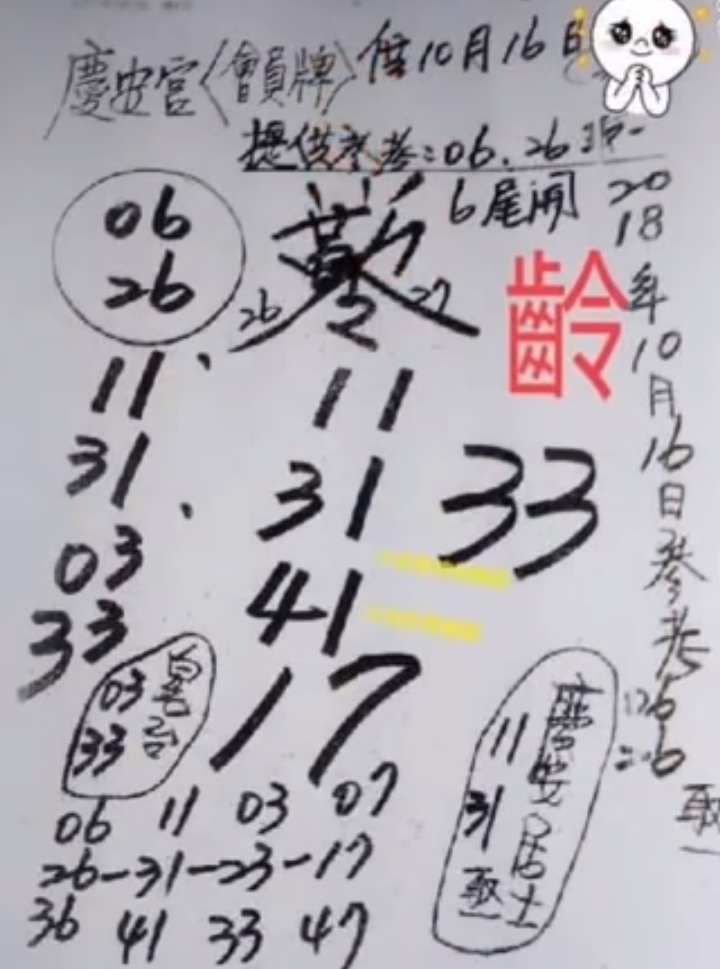 慶安宮〈會員牌〉信10月16日
提供參考:06、26取一
6尾開
06
26
26 27
齡
2018年10月16日參考
06
26
取一
11、
31、
03
33
11
31
41
17
33
03
33
慶安居士
11
31
取一
06 11 03 07
26-31-23-17
36 41 33 47